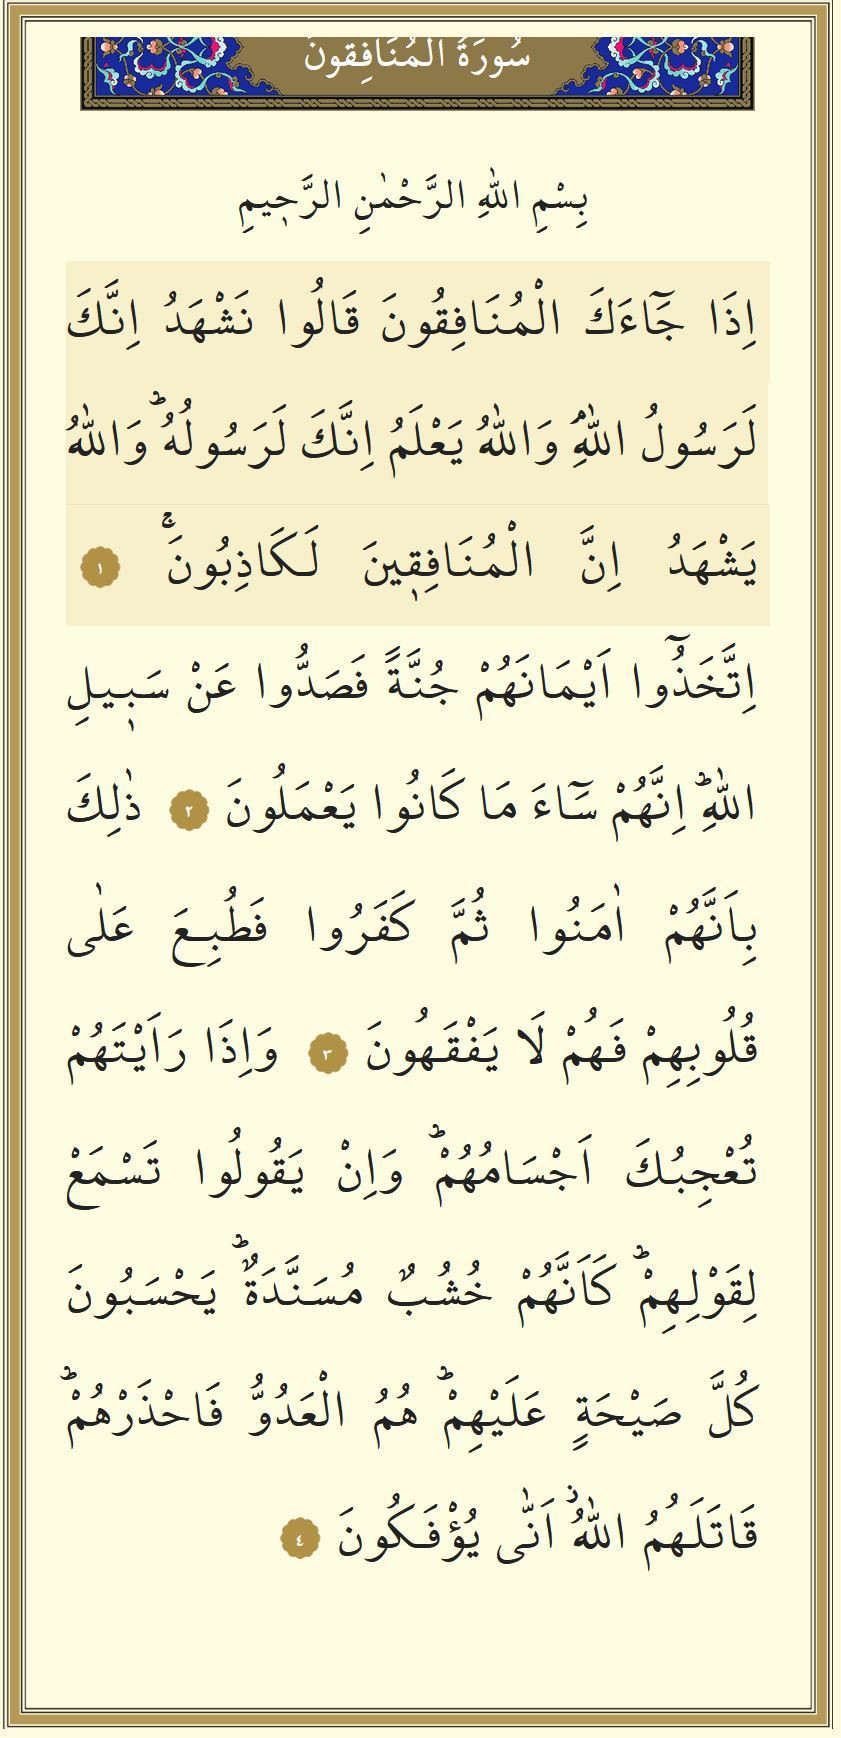 سُورَةُ الْمُنَافِقُونَ
بِسْمِ اللّٰهِ الرَّحْمٰنِ الرَّحٖيمِ
اِذَا جَٓاءَكَ الْمُنَافِقُونَ قَالُوا نَشْهَدُ اِنَّكَ
لَرَسُولُ اللّٰهِۢ وَاللّٰهُ يَعْلَمُ اِنَّكَ لَرَسُولُهُؕ وَاللّٰهُ
يَشْهَدُ اِنَّ الْمُنَافِقٖينَ لَكَاذِبُونَۚ ١
اِتَّخَذُٓوا اَيْمَانَهُمْ جُنَّةً فَصَدُّوا عَنْ سَبٖيلِ
اللّٰهِؕ اِنَّهُمْ سَٓاءَ مَا كَانُوا يَعْمَلُونَ ٢ ذٰلِكَ
بِاَنَّهُمْ اٰمَنُوا ثُمَّ كَفَرُوا فَطُبِعَ عَلٰى
قُلُوبِهِمْ فَهُمْ لَا يَفْقَهُونَ ٣ وَاِذَا رَاَيْتَهُمْ
تُعْجِبُكَ اَجْسَامُهُمْؕ وَاِنْ يَقُولُوا تَسْمَعْ
لِقَوْلِهِمْؕ كَاَنَّهُمْ خُشُبٌ مُسَنَّدَةٌؕ يَحْسَبُونَ
كُلَّ صَيْحَةٍ عَلَيْهِمْؕ هُمُ الْعَدُوُّ فَاحْذَرْهُمْؕ
قَاتَلَهُمُ اللّٰهُؗ اَنّٰى يُؤْفَكُونَ ٤